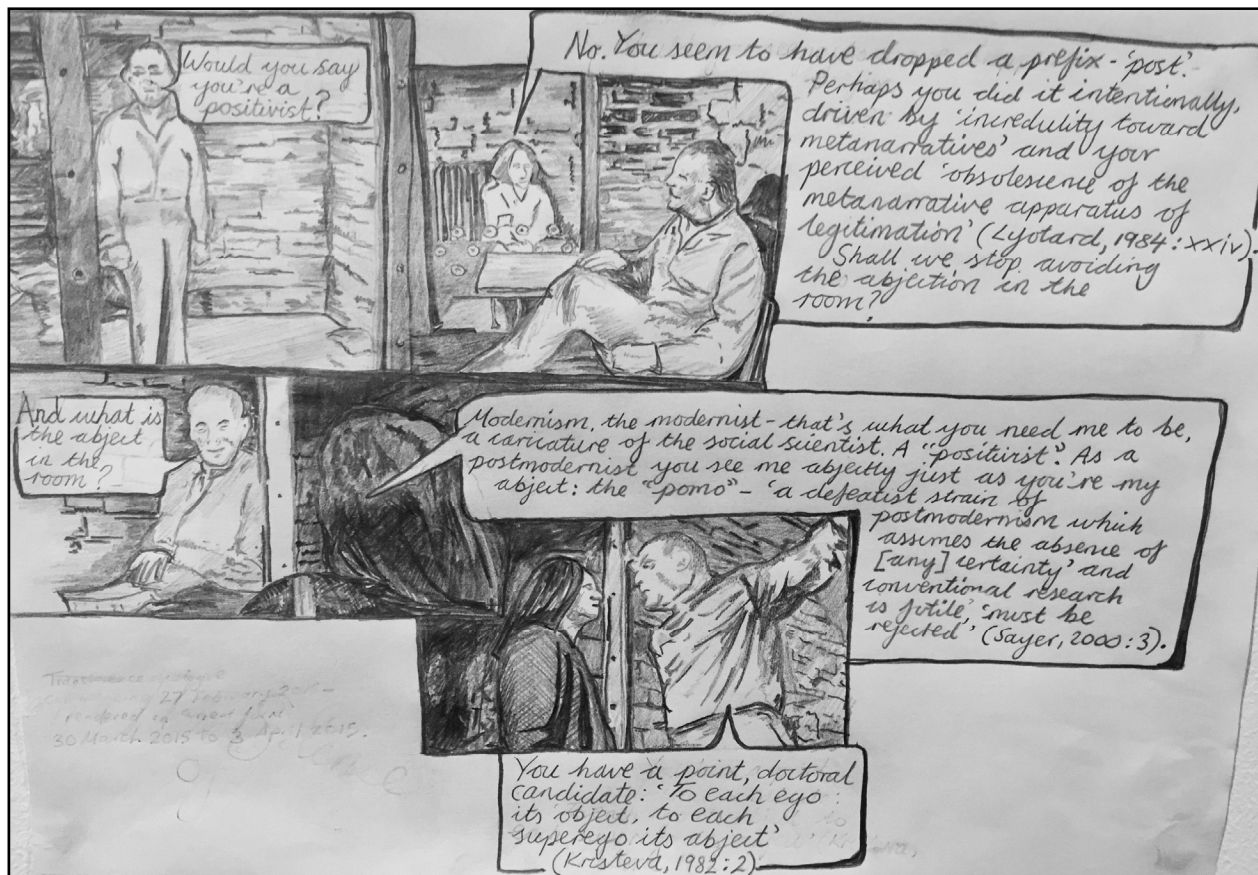 Would you say
you're a
positivist?
No. You seem to have dropped a prefix - 'post'.
Perhaps you did it intentionally,
driven by 'incredulity toward
metanarratives' and your
perceived 'obsolescence of the
metanarrative apparatus of
legitimation' (Lyotard, 1984:xxiv).
Shall we stop avoiding
the abjection in the
room?
And what is
the abject
in the
room?
Modernism, the modernist - that's what you need me to be,
a caricature of the social scientist. A "positivist". As a
postmodernist you see me abjectly just as you're my
abject: the "pomo" - 'a defeatist strain of
postmodernism which
assumes the absence of
[any] certainty' and
conventional research
is futile, 'must be
rejected' (Sayer, 2000:3).
27 February
rendered in
30 March 2015 to 3 April 2015.
You have a point, doctoral
candidate: 'To each ego
its object, to each
superego its abject'
(Kristeva, 1982:2)